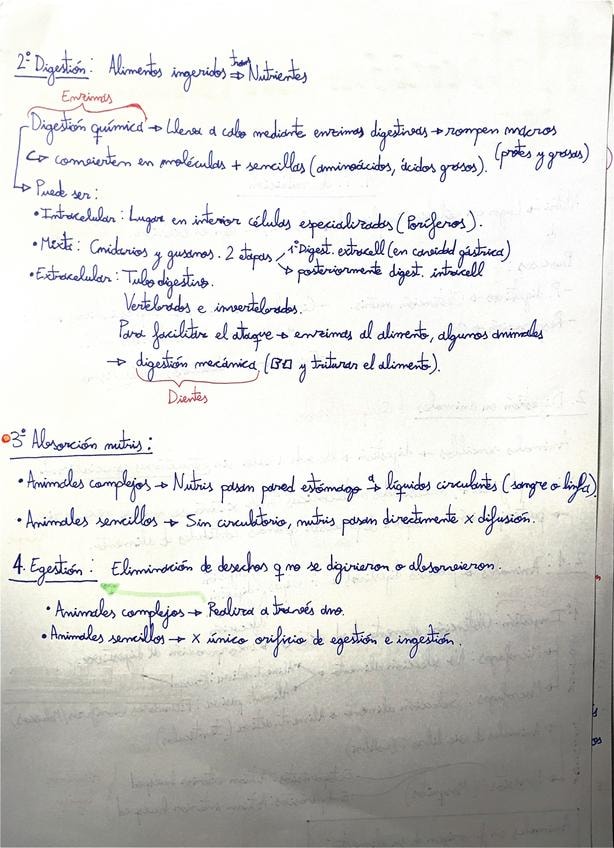 2º Digestión: Alimentos ingeridos ⇒ Nutrientes
Enzimas
Digestión química → Lleva a cabo mediante enzimas digestivas → rompen macros
(protes y grasas)
↪ convierten en moléculas + sencillas (aminoácidos, ácidos grasos).
↳ Puede ser:
• Intracelular: Lugar en interior células especializadas (Poríferos).
• Mixta: Cnidarios y gusanos. 2 etapas 1º Digest. extracell (en cavidad gástrica)
↘ posteriormente digest. intracell
• Extracelular: Tubo digestivo.
Vertebrados e invertebrados.
Para facilitar el ataque → enzimas al alimento, algunos animales
→ digestión mecánica, ( y triturar el alimento).
Dientes
3º Absorción nutris:
• Animales complejos → Nutris pasan pared estómago a → líquidos circulantes (sangre o linfa).
• Animales sencillos → Sin circulatorio, nutris pasan directamente x difusión.
4. Egestión: Eliminación de desechos q no se digirieron o absorvieron.
• Animales complejos → Realiza a través ano.
• Animales sencillos → x único orificio de egestión e ingestión.